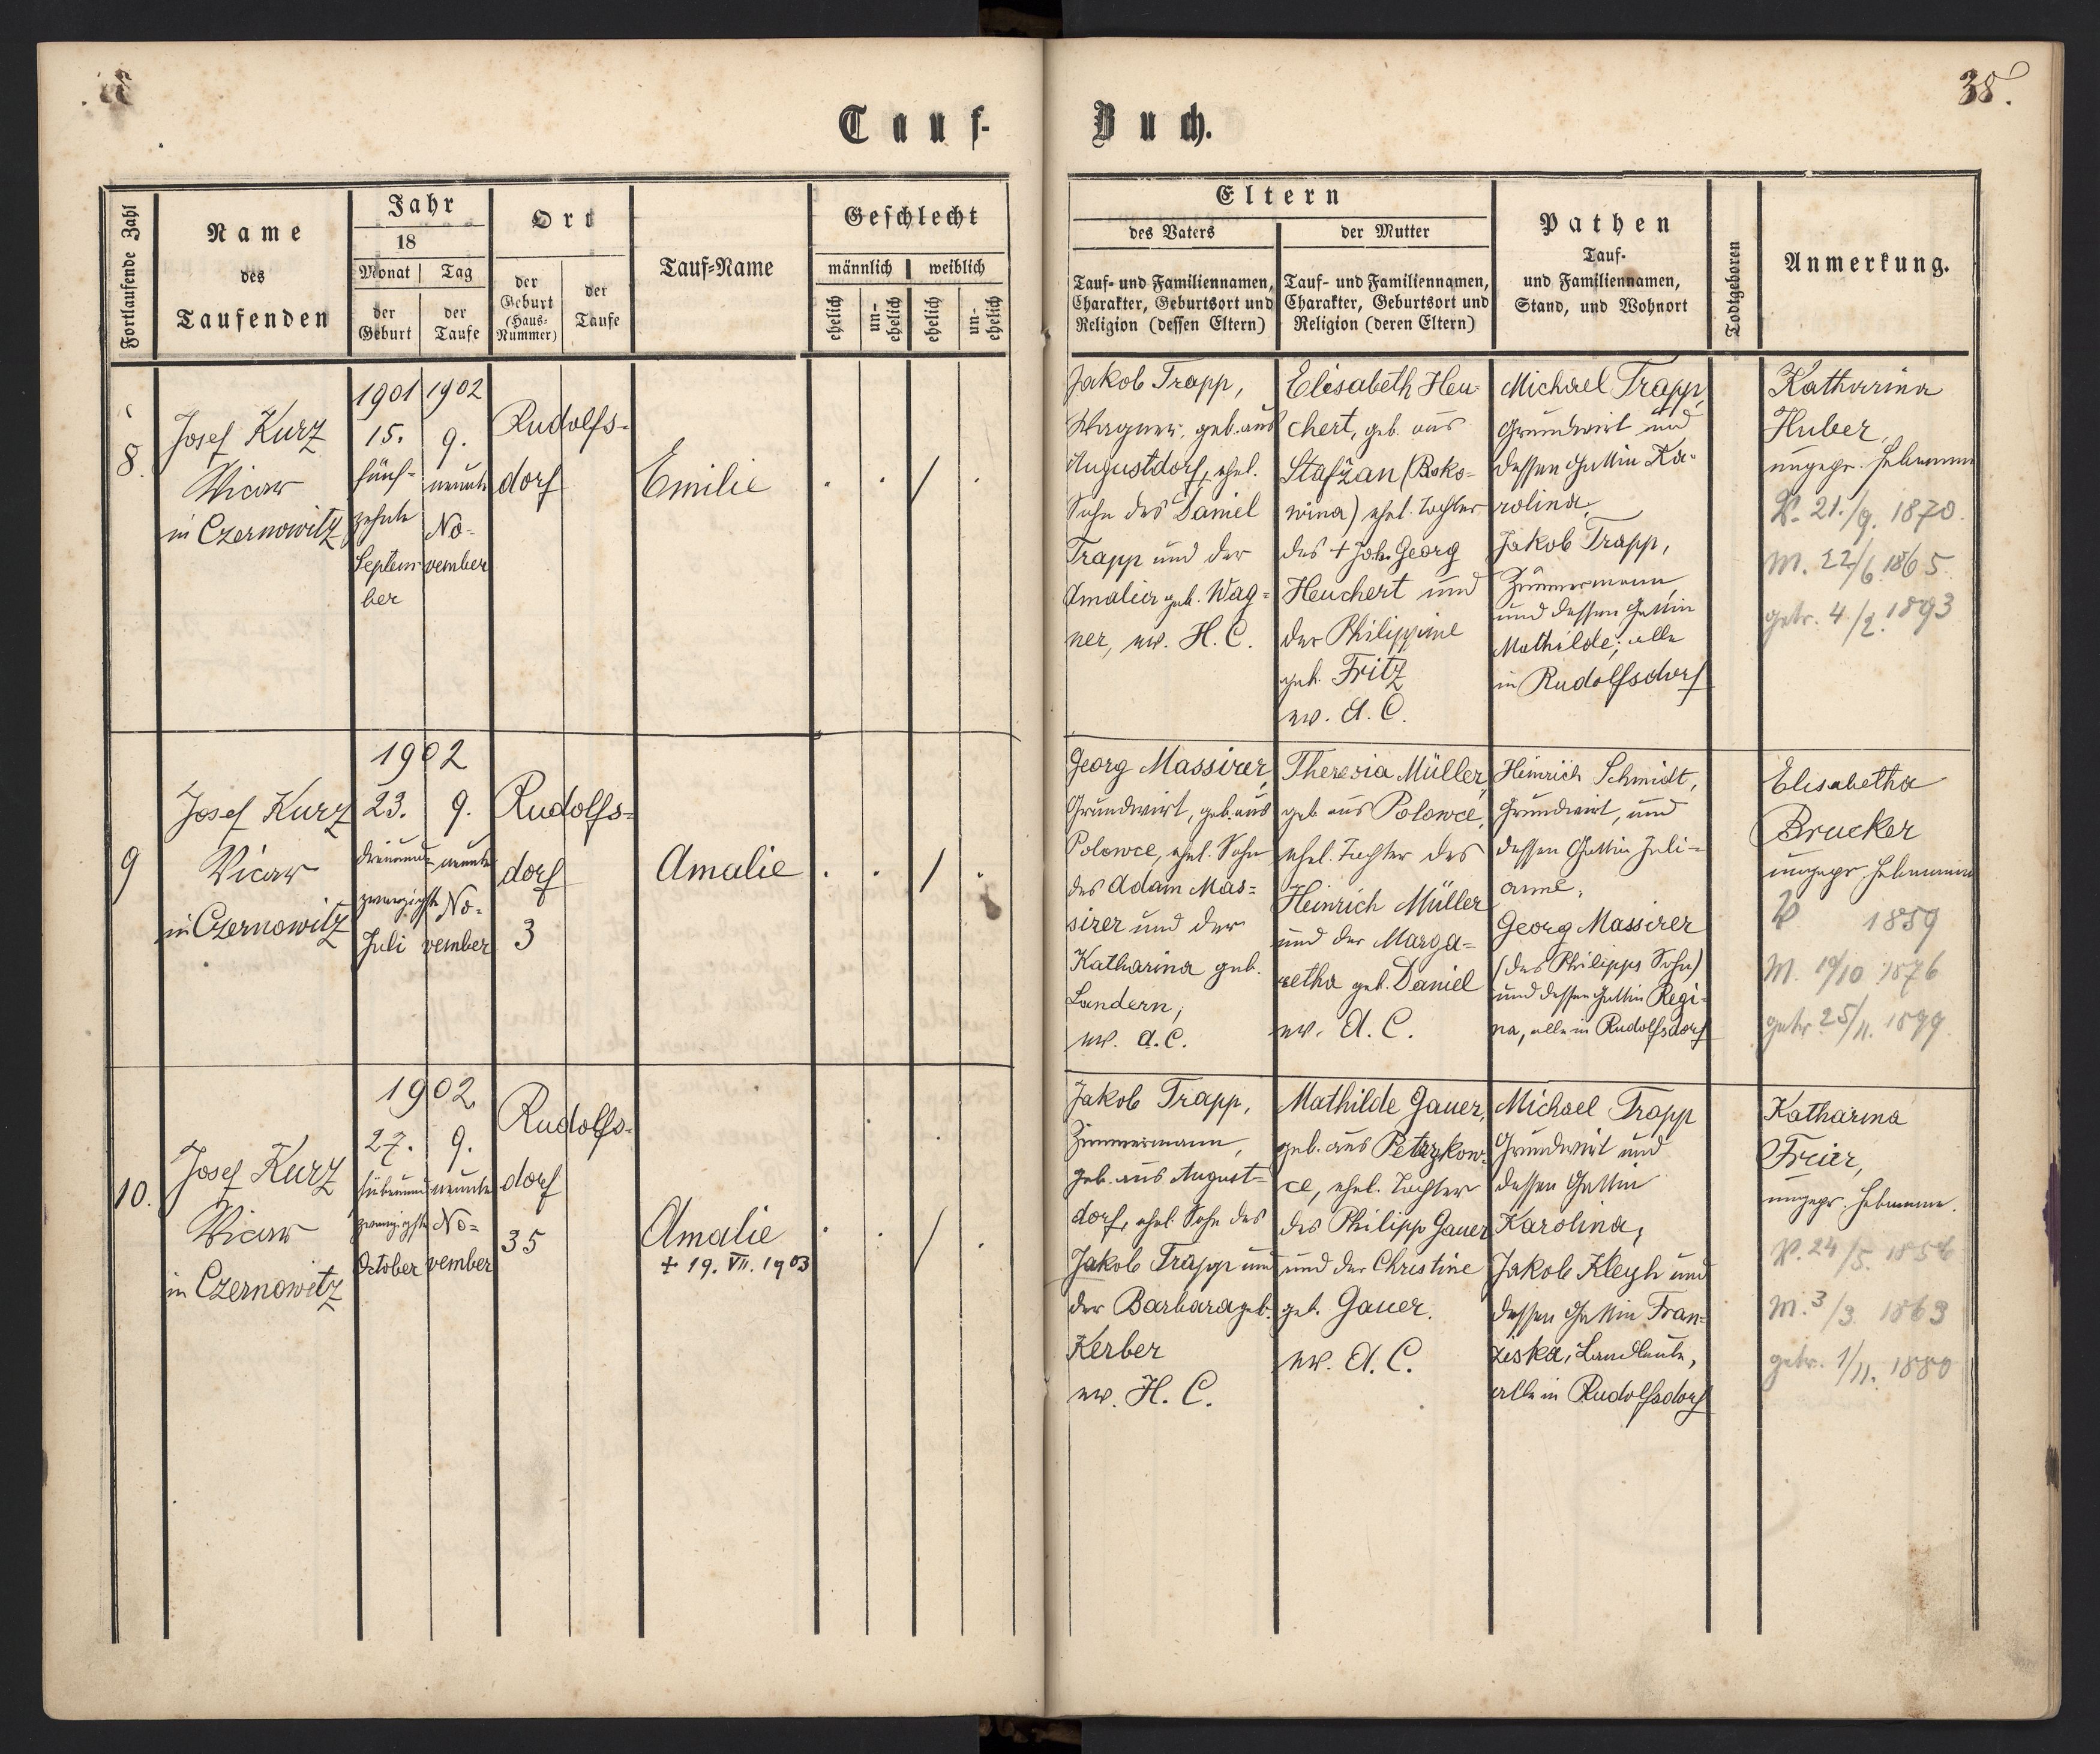 38.
Tauf-
Buch.
Fortlaufende Zahl
Name
des
Taufenden
Jahr
18
Monat
Tag
der
Geburt
der
Taufe
Ort
der
Geburt
(Haus-
Nummer)
der
Taufe
Tauf-Name
Geschlecht
männlich
weiblich
ehelich
un-
ehelich
ehelich
un-
ehelich
Eltern
des Vaters
der Mutter
Tauf- und Familiennamen,
Charakter, Geburtsort und
Religion (dessen Eltern)
Tauf- und Familiennamen,
Charakter, Geburtsort und
Religion (deren Eltern)
Pathen
Tauf-
und Familiennamen,
Stand, und Wohnort
Todtgeboren
Anmerkung.
8.
Josef Kurz
Vicar
in Czernowitz
1901
15.
fünf-
zehnte
Septem-
ber
1902
9.
neunte
No-
vember
Rudolfs-
dorf
Emilie
. . / .
Jakob Trapp,
Wagner, geb. aus
Augustdorf, ehel.
Sohn des Daniel
Trapp und der
Amalia geb. Wag-
ner, ev. H. C.
Elisabeth Heu-
chert, geb. aus
(Buko-
wina) ehel. Tochter
des + Joh. Georg
Heuchert und
der Philippine
geb. Fritz
ev. A. C.
Michael Trapp,
Grundwirt und
dessen Gattin Ka-
rolina,
Jakob Trapp,
Zimmermann,
und dessen Gattin
Mathilde; alle
in Rudolfsdorf
Katharina
Huber,
ungepr. Hebamme
V. 21./9. 1870.
M. 22/6. 1865.
getr. 4./2. 1893
9
Josef Kurz
Vicar
in Czernowitz
1902
23.
dreiund-
zwanzigste
Juli
9.
neunte
No-
vember
Rudolfs-
dorf
3
Amalie
. . / .
Georg Massirer,
Grundwirt, geb. aus
Polowce, ehel. Sohn
des Adam Mas-
sirer und der
Katharina geb.
Landern,
ev. A. C.
Theresia Müller,
geb. aus Polowce,
ehel. Tochter des
Heinrich Müller
und der Marga-
retha geb. Daniel
ev. A. C.
Heinrich Schmidt,
Grundwirt, und
dessen Gattin Juli-
anne,
Georg Massirer
(des Philipps Sohn)
und dessen Gattin Regi-
na, alle in Rudolfsdorf
Elisabetha
Brucker
ungepr. Hebamme
V. 1859
M. 19/10 1876
getr. 25/11. 1899.
10.
Josef Kurz
Vicar
in Czernowitz
1902
27.
siebenund-
zwanzigste
October
9.
neunte
No-
vember
Rudolfs-
dorf
35
Amalie
+ 19. VII. 1903
. . / .
Jakob Trapp,
Zimmermann,
geb. aus August-
dorf, ehel. Sohn des
Jakob Trapp und
der Barbara geb.
Kerber
ev. H. C.
Mathilde Gauer,
geb. aus
ce, ehel. Tochter
des Philipp Gauer
und der Christine
geb. Gauer.
ev. A. C.
Michael Trapp
Grundwirt und
dessen Gattin
Karolina,
Jakob Kleyh und
dessen Gattin Fran-
ziska, Landleute,
alle in Rudolfsdorf
Katharina
Freier,
ungepr. Hebamme.
V. 24/5.
M. 3/3. 1863
getr. 1/11. 1880